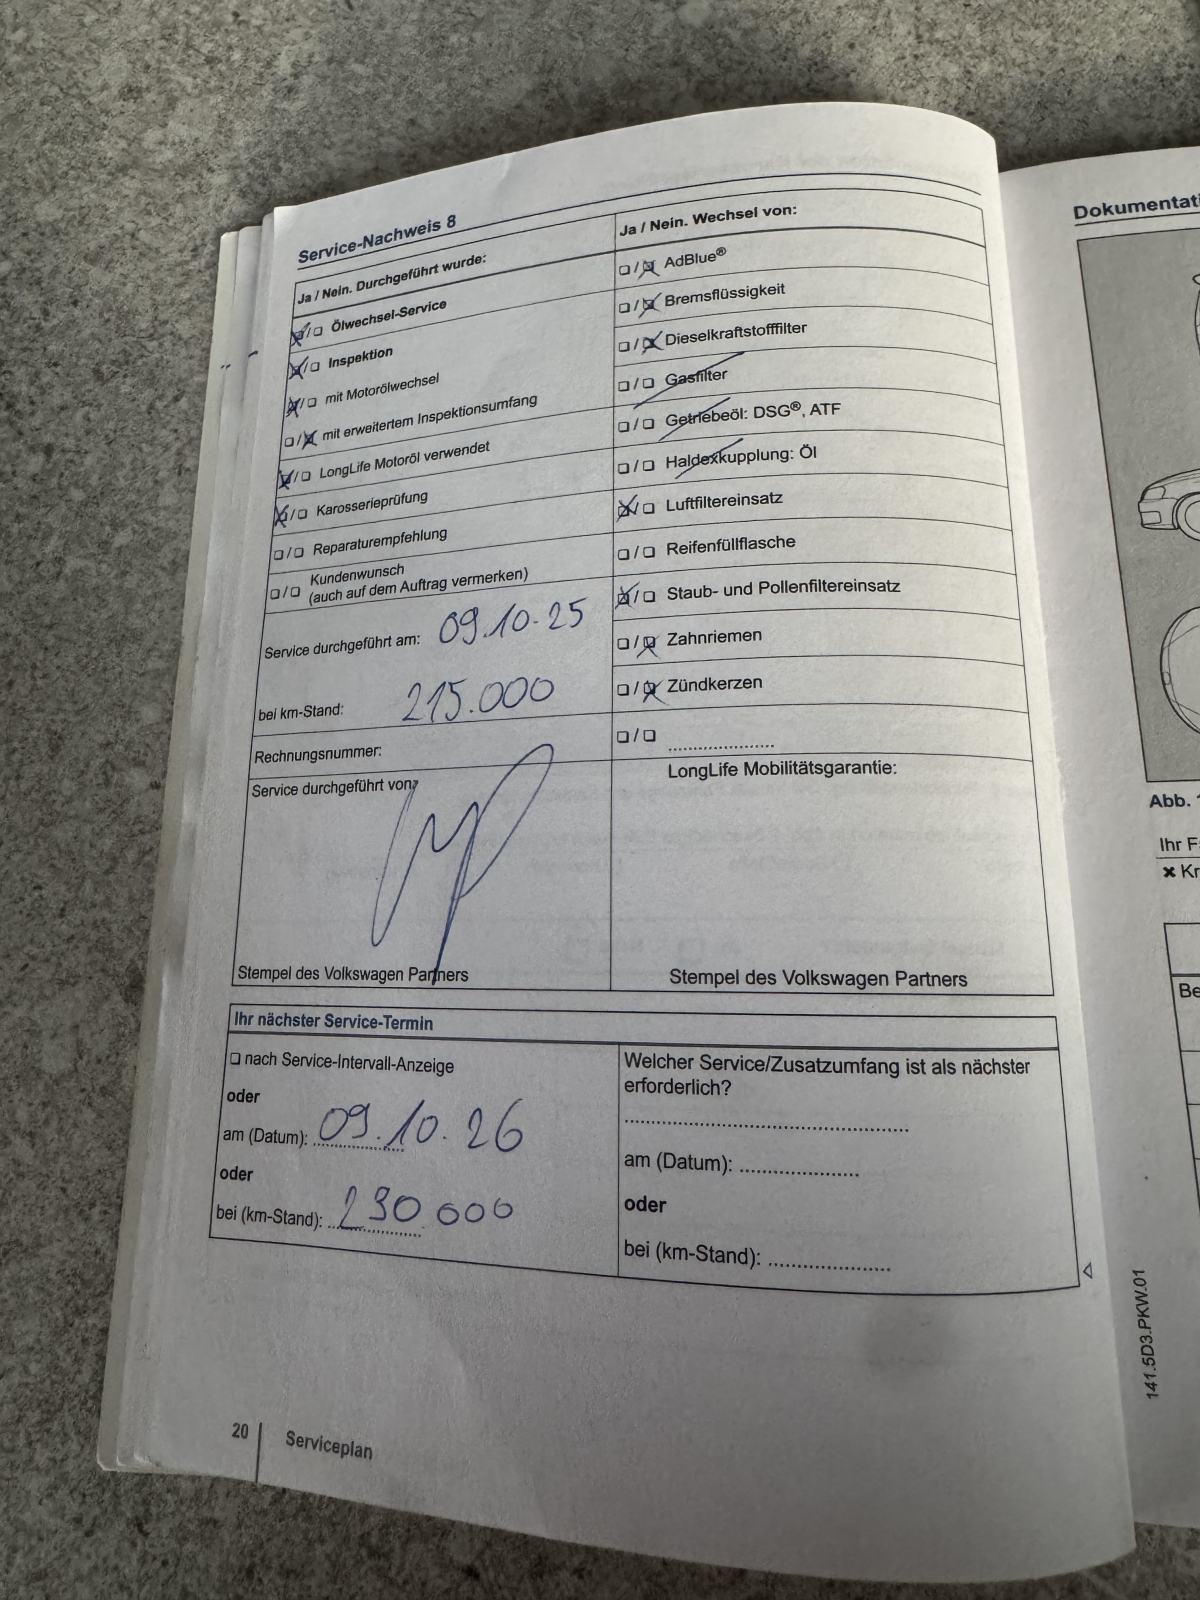 Service-Nachweis 8
Ja / Nein. Durchgeführt wurde:
☒/☐ Ölwechsel-Service
☒/☐ Inspektion
☒/☐ mit Motorölwechsel
☐/☒ mit erweitertem Inspektionsumfang
☒/☐ LongLife Motoröl verwendet
☒/☐ Karosserieprüfung
☐/☐ Reparaturempfehlung
☐/☐ Kundenwunsch
(auch auf dem Auftrag vermerken)
Service durchgeführt am: 09.10.25
bei km-Stand: 215.000
Rechnungsnummer:
Service durchgeführt von:
Stempel des Volkswagen Partners
Ja / Nein. Wechsel von:
☐/☒ AdBlue®
☐/☒ Bremsflüssigkeit
☐/☒ Dieselkraftstofffilter
☐/☐ Gasfilter
☐/☐ Getriebeöl: DSG®, ATF
☐/☐ Haldexkupplung: Öl
☒/☐ Luftfiltereinsatz
☐/☐ Reifenfüllflasche
☒/☐ Staub- und Pollenfiltereinsatz
☐/☒ Zahnriemen
☐/☒ Zündkerzen
☐/☐ ....................
LongLife Mobilitätsgarantie:
Stempel des Volkswagen Partners
Ihr nächster Service-Termin
☐ nach Service-Intervall-Anzeige
oder
am (Datum): 09.10.26
oder
bei (km-Stand): 230.000
Welcher Service/Zusatzumfang ist als nächster
erforderlich?
am (Datum): ....................
oder
bei (km-Stand): ....................
20
Serviceplan
Dokumentati
Abb.
Ihr F
✖ Kr
Be
141.5D3.PKW.01